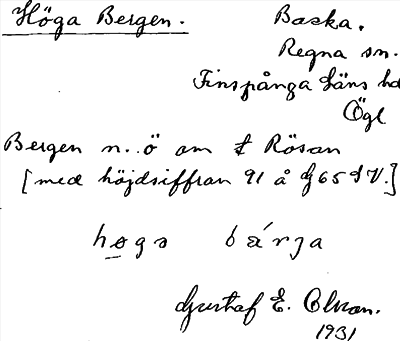 Höga Bergen.
Backa.
Regna sn.
Finspånga läns hd
Ögl
Bergen n. ö om t Rösan
[med höjdsiffran 91 å Gf 65 S V.]
høgə bárja
Gustaf E. Olson.
1931